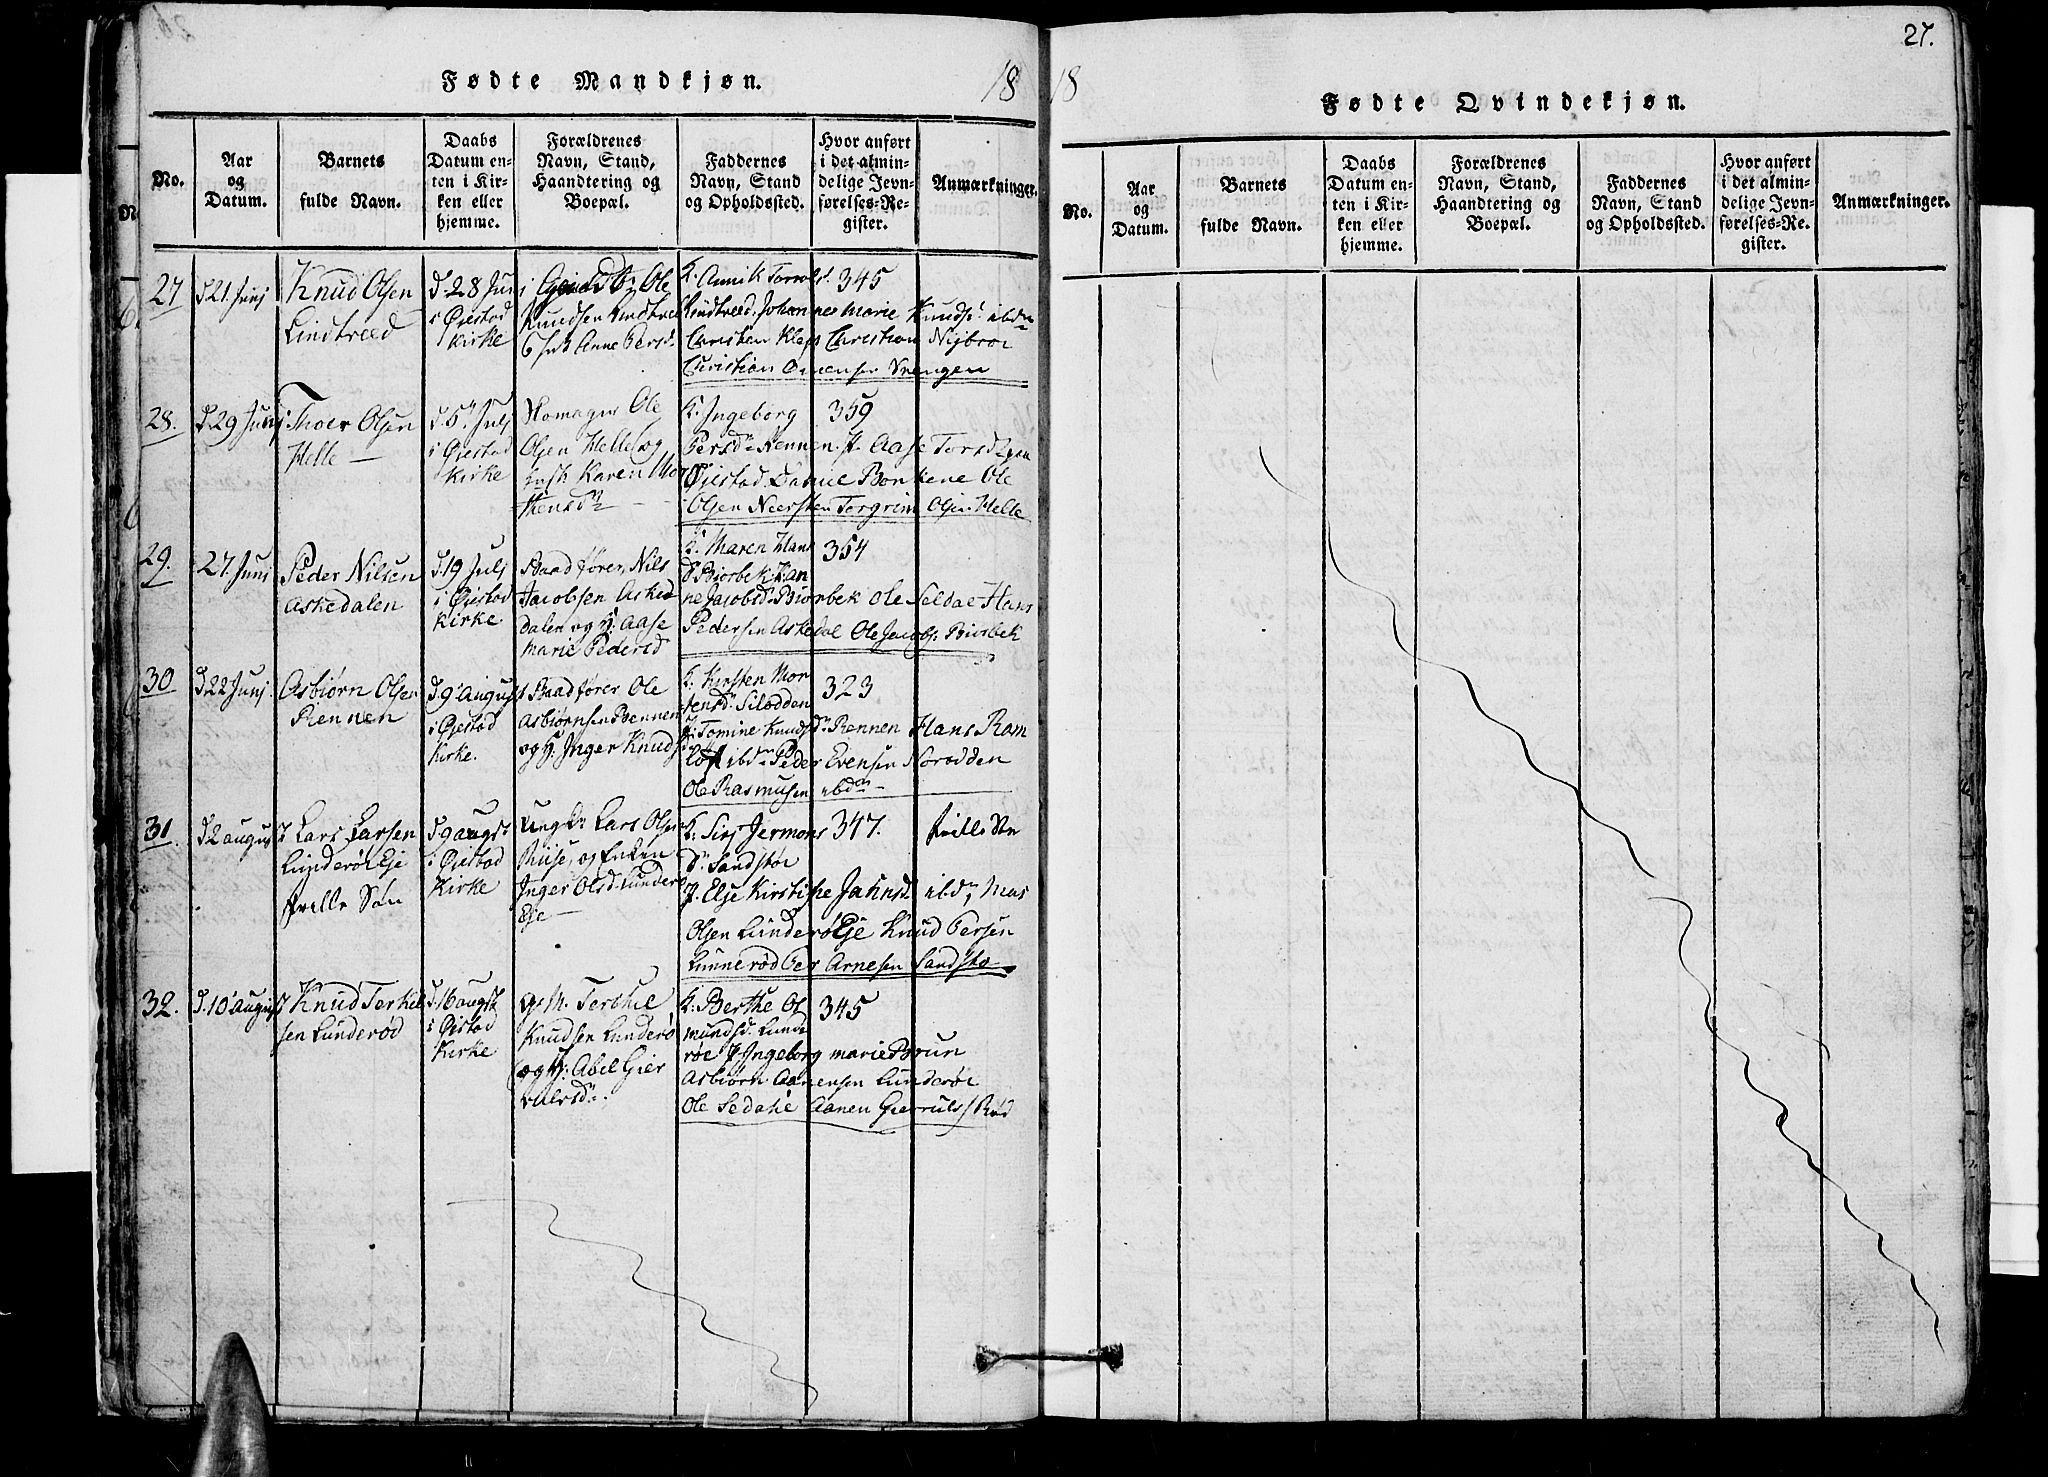 27.
Fødte Mandkjøn.
18
No.
Aar
og
Datum.
Barnets
fulde Navn.
Daabs
Datum en-
ten i Kir-
ken eller
hjemme.
Forældrenes
Navn, Stand,
Haandtering og
Boepæl.
Faddernes
Navn, Stand
og Opholdssted.
Hvor anført
i det almin-
delige Jevn-
førelses-Re-
gister.
Anmærkninger.
27
d 21 Junj
Knud Olsen
Lindtveed
d 28 Juni
i Øiestad
Kirke
Ole
Knudsen Lindtvee
Anne Persd
K. Annik
Lindtveed. Johanne Marie Knudsd ibdm
Christen Klep Christian Nijbroe
Christian Vrengen
345
28.
d. 29 Junj
Thoer Olsen
Helle
d. 5 Julj
i Øiestad
Kirke
Ole
Olsen Helle og
Karen Mor
thensdr
K. Ingeborg
Persdr Rennen. Aase Torsdr
Øiestad Ole
Olsen Neersten Torgrim Olsen Helle
359
29.
27. Junj
Peder Nilsen
Askedalen
d. 19 Julj
i Øiestad
Kirke
Baadfører Nils
Jacobsen Asked
dalen og H. Aase
Marie Pedersd
K. Maren Hans
dr Biorbek. Han
ne Jacobsdr Biorbek Ole Seldal Hans
Pedersen Askedal Ole Jacobs: Biorbek
354
30
d. 22 Junj.
Asbiørn Olsen
Rennen
d. 9 August
i Øiestad
Kirke.
Baadfører Ole
Asbiørnsen Rennen
og H. Inger Knuds
K. Kirsten Mor
tensdr Silodden
P. Tomine Knudsdr Rennen Hans Rom
ibdm Peder Evensen Norodden
Ole Rasmusen ibdm
323
31.
d 2 august
Lars Larsen
Lunderøe Eje
d. 9 augst
i Øiestad
Kirke
Lars Olsen
og Enken
Inger Olsd. Lunderø
Eje
K. Sirj Jermons
dr Sandskoe
P. Else Kirstine Jahnsd ibdm, Mas
Olsen Lunderø Eje Knud Persen
Lunnerød Per Arnesen Sandskoe
347.
32.
d. 10 august
Knud Terkel
sen Lunderød
d. 16 augst
i Øiestad
Kirke
G. M. Terchil
Knudsen Lunderø
og H: Abel Gier
vulsdr.
K. Berthe Os
mundsd. Lunde
roe P Ingeborg Marie Brun
Asbiørn Aanensen Lunderøe
Ole Sedahl Aanen Gierruls: Rød
345
18
27.
Fødte Qvindekjøn.
No.
Aar
og
Datum.
Barnets
fulde Navn.
Daabs
Datum en-
ten i Kir-
ken eller
hjemme.
Forældrenes
Navn, Stand,
Haandtering og
Boepæl.
Faddernes
Navn, Stand
og Opholdssted.
Hvor anført
i det almin-
delige Jevn-
førelses-Re-
gister.
Anmærkninger.